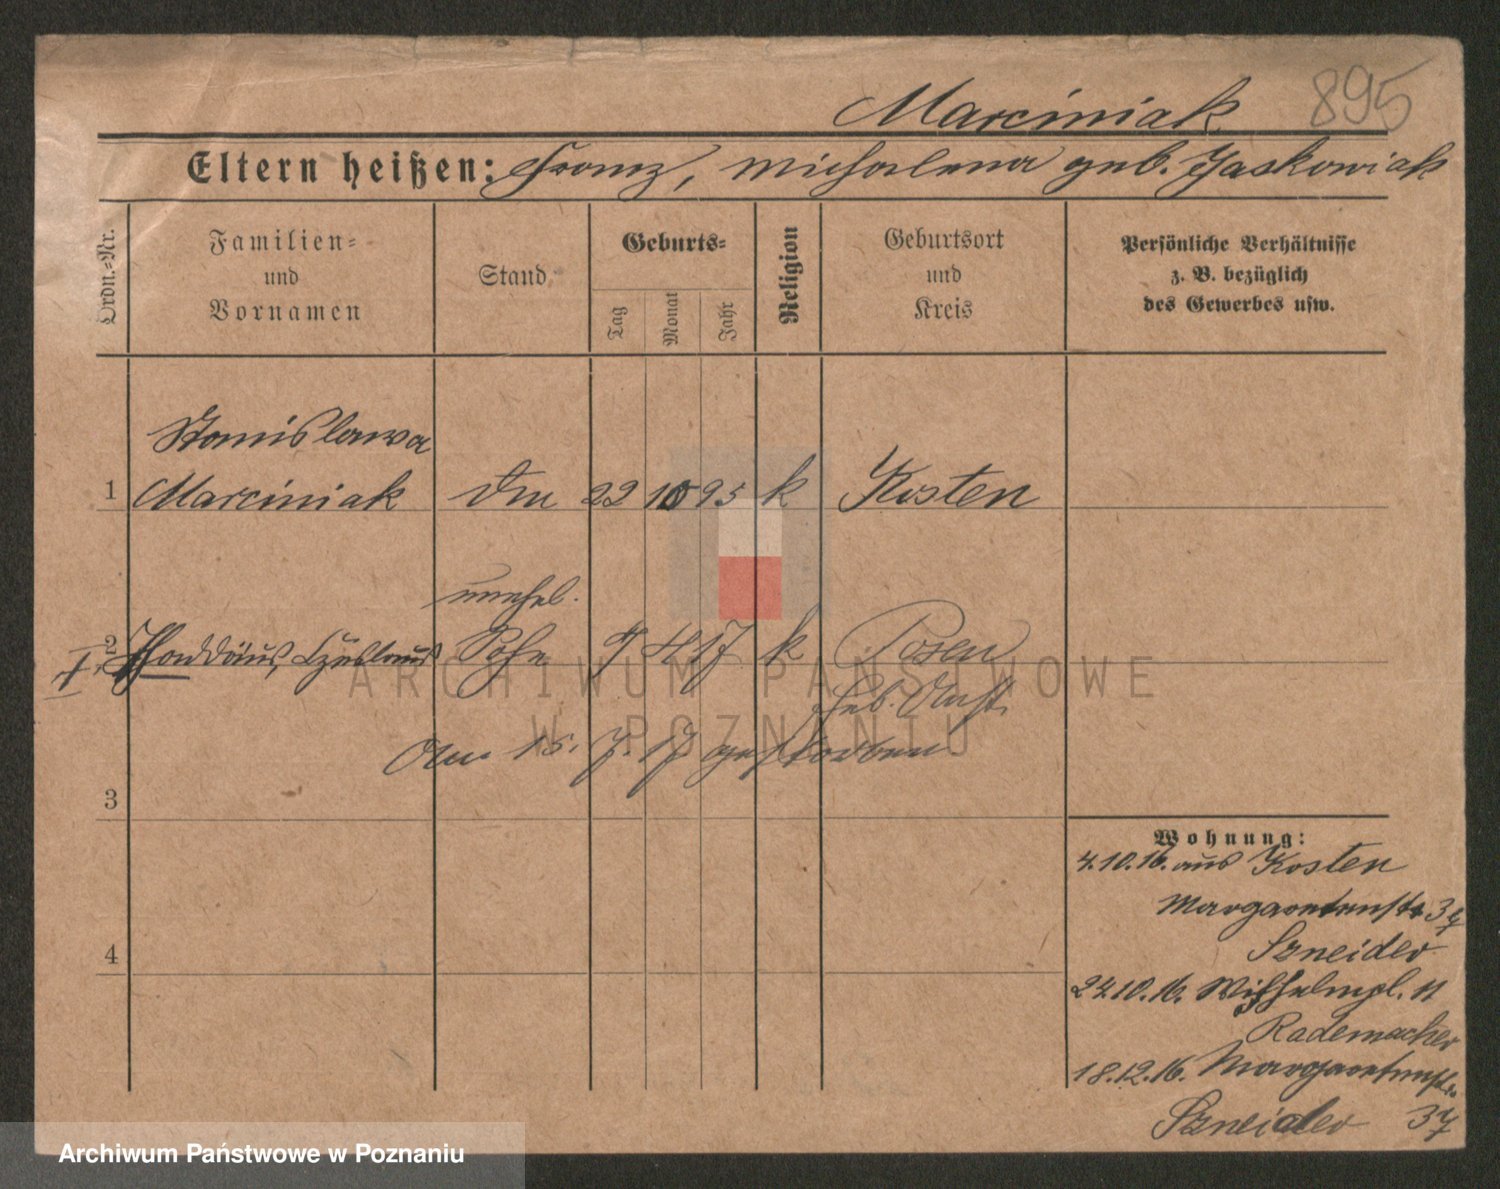 895
Marciniak
Eltern heißen: Franz, Michalena geb. Jaskowiak
Ordn.-Nr.
Familien-
und
Vornamen
Stand
Geburts-
Tag
Monat
Jahr
Religion
Geburtsort
und
Kreis
Persönliche Verhältnisse
z. B. bezüglich
des Gewerbes usw.
Stanislawa
1 Marciniak 22 10 95 k Kosten
unehel.
2 Thaddäus, Czeslaus Sohn 9 4 17 k Posen
Heb. Anst.
Am 15. 7. 17 gestorben
3
4
Wohnung:
4.10.16. aus Kosten
Margaretenstr
Szneider
24.10.16. Wilhelmpl. 11
Rademacher
18.12.16. Margaretenstr.
Szneider
ARCHIWUM PAŃSTWOWE
W POZNANIU
Archiwum Państwowe w Poznaniu